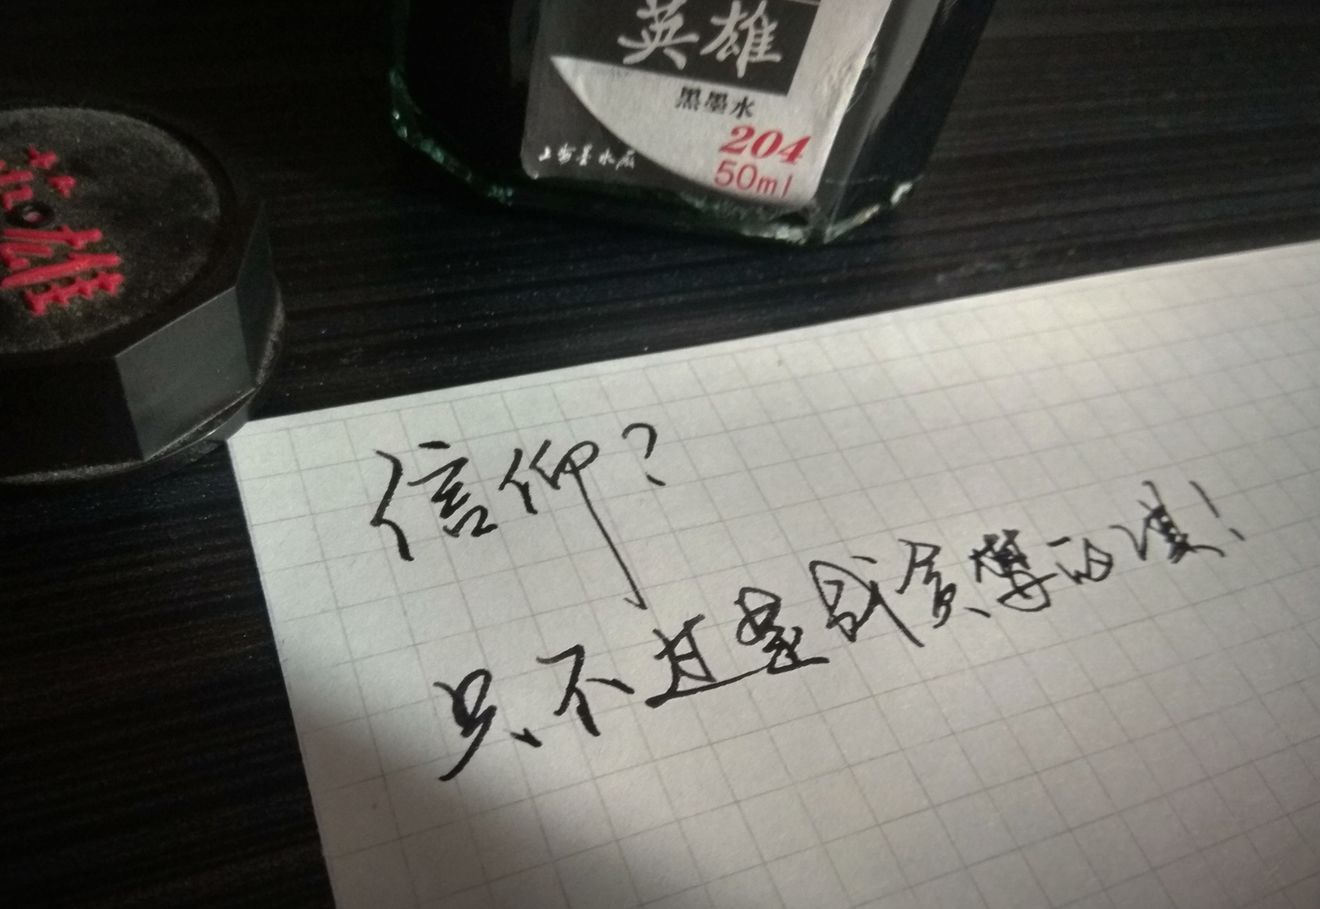 英雄
黑墨水
204
50ml
上海墨水厂
英雄
信仰?
只不过是我贫薄的谎!